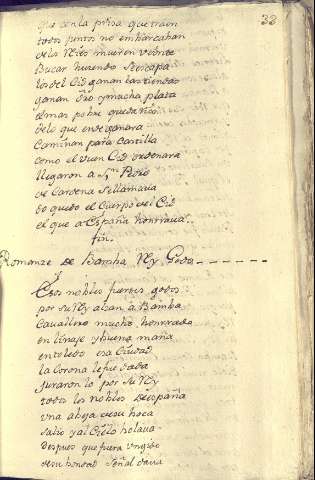 33
que con la prisa que traen
todos juntos no embarcaban
de los Reies mueren veinte
Bucar huiendo se escapa
los del Cid ganan las tiendas
ganan oro y mucha plata
el mas pobre queda rico
de lo que ende ganara
Caminan para Castilla
como el buen Cid ordenara
llegaron a Sn Pedro
de Cardena se llamaua
do quedo el Cuerpo del Cid
el que a España honrraua.
fin.
Romanze de Bamba Rey Godo
Esos nobles fuertes godos
por su Rey alzan a Bamba
Cauallero mucho honrrado
en linaje y buena maña
en toledo esa Ciudad
la Corona le fue dada
Juraron lo por su Rey
todos los nobles de españa
vna abeja de su boca
salio y al Cielo bolaua
despues que fuera vngido
de su bondad señal daua